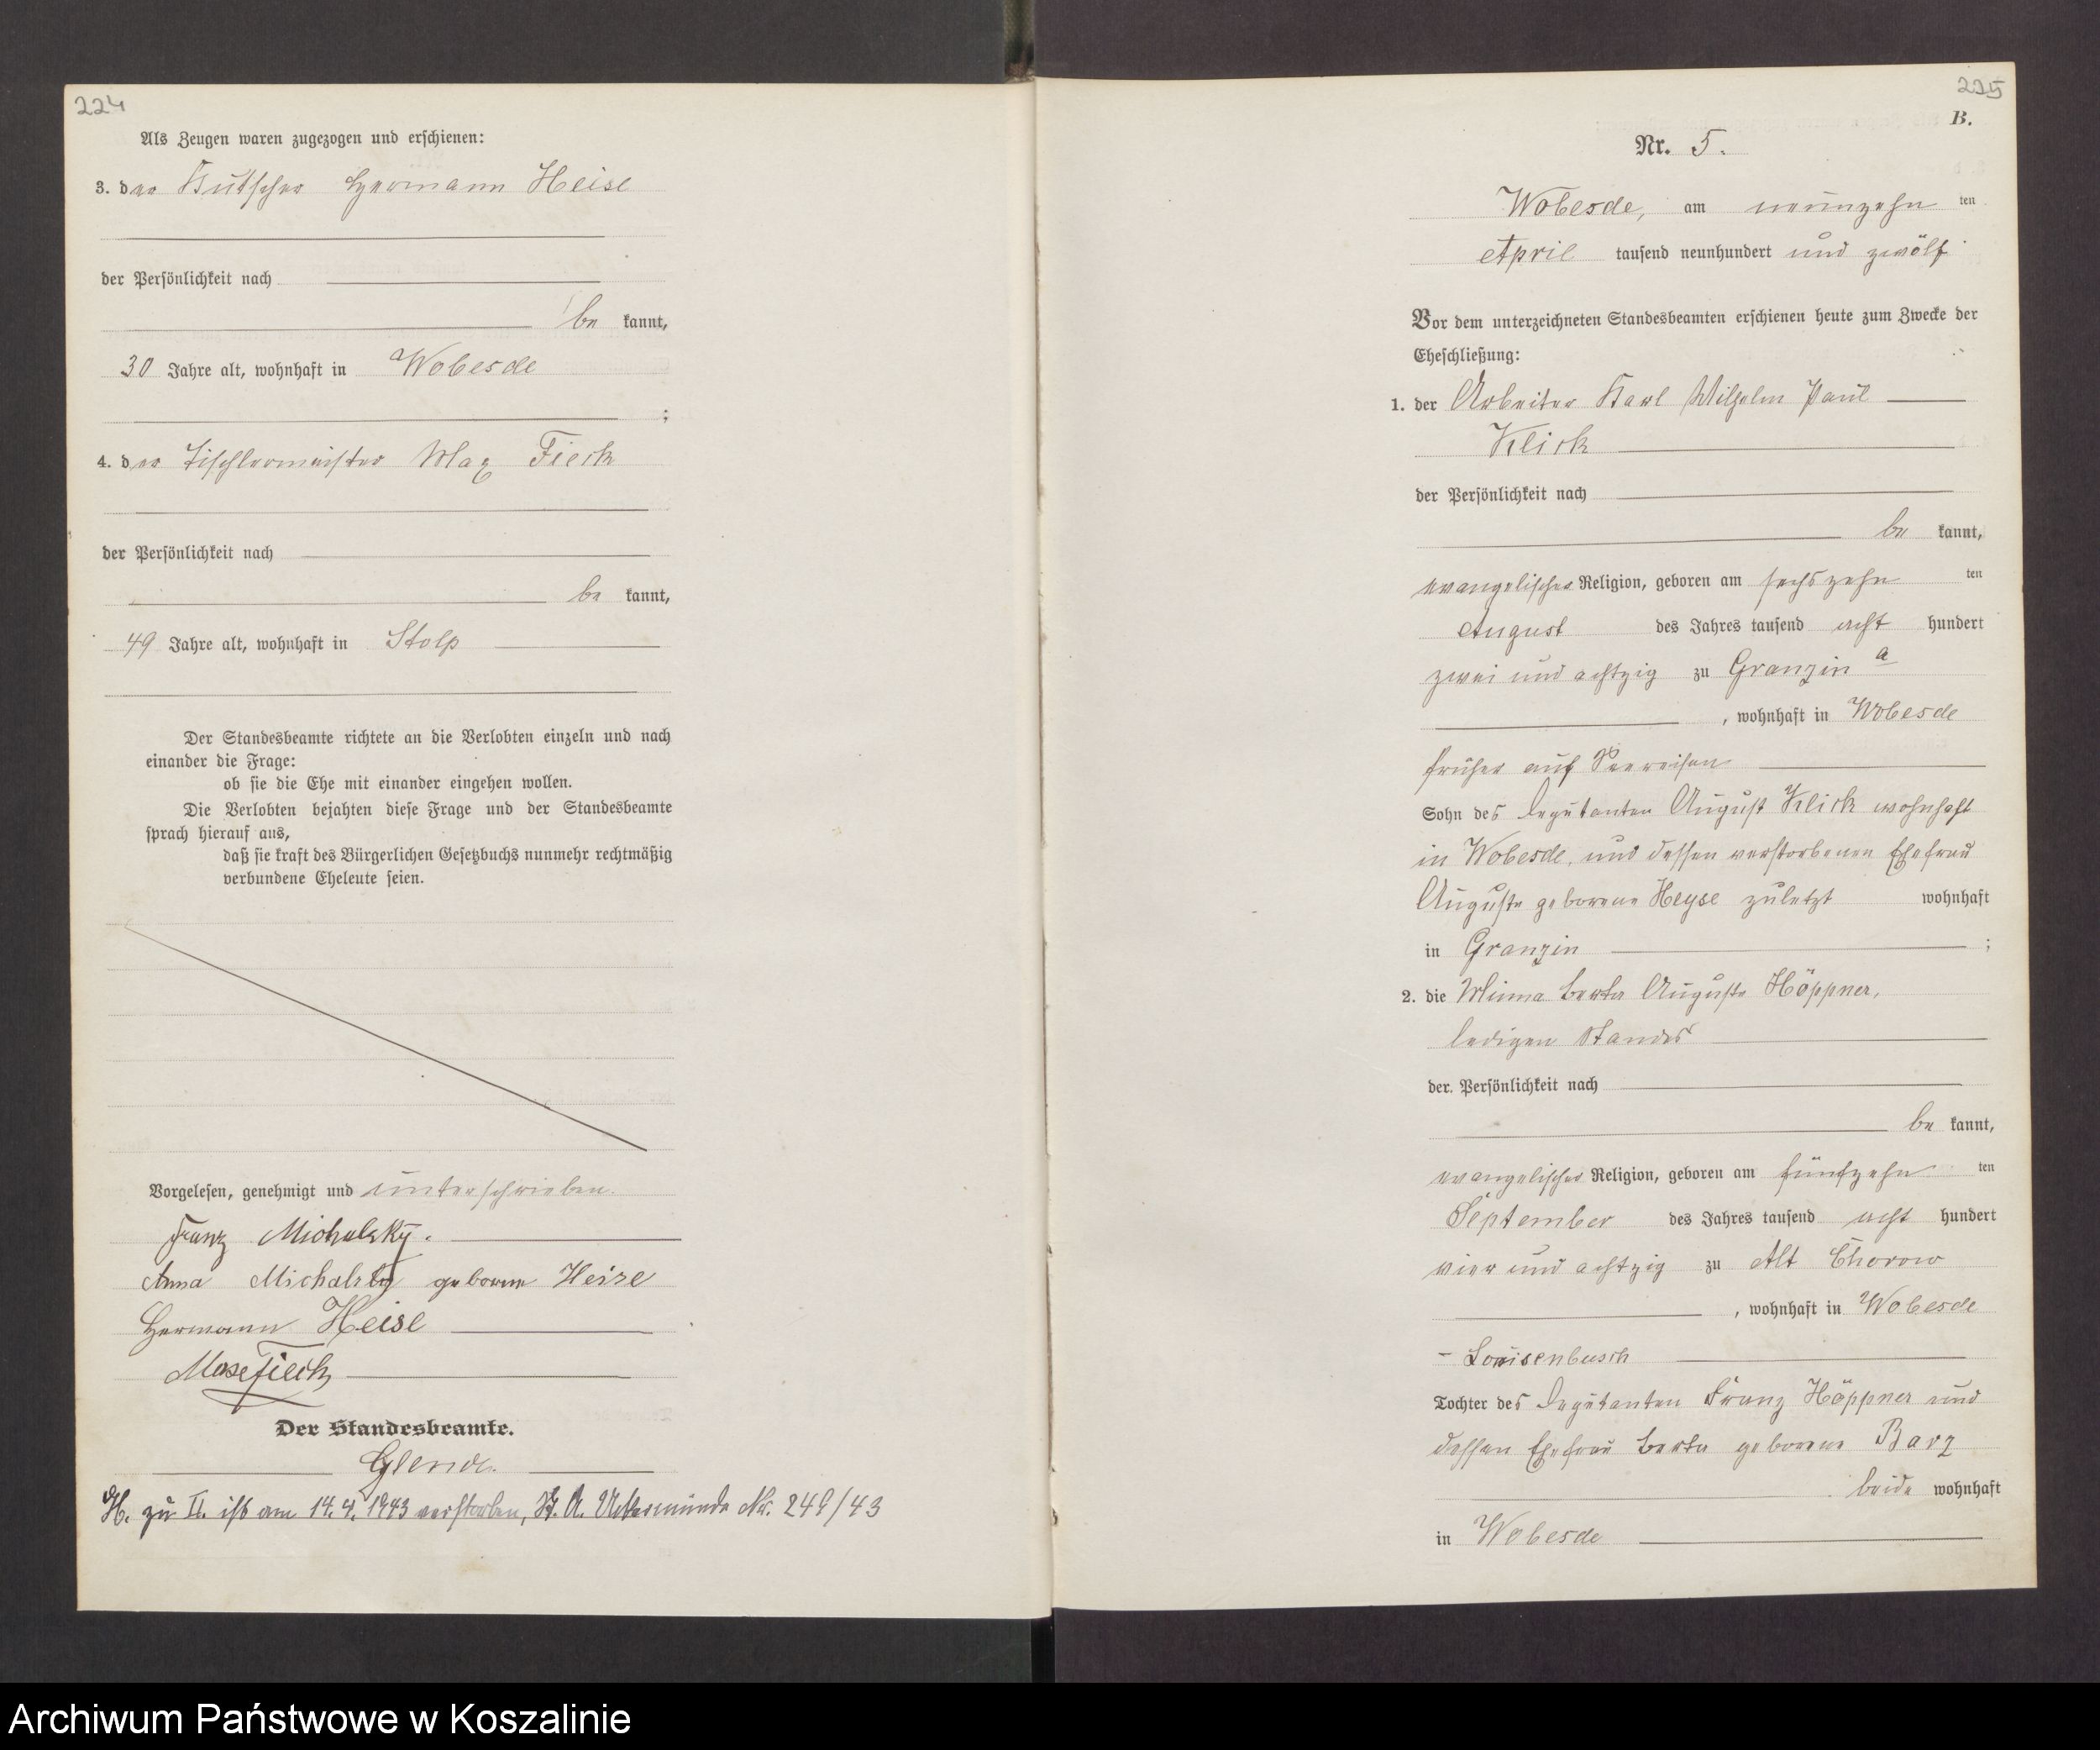 224
Als Zeugen waren zugezogen und erschienen:
3. der Kutscher Hermann Heise
der Persönlichkeit nach
be kannt,
30 Jahre alt, wohnhaft in Wobesde
;
4. der Tischlermeister Max Fieck
der Persönlichkeit nach
be kannt,
49 Jahre alt, wohnhaft in Stolp
Der Standesbeamte richtete an die Verlobten einzeln und nach
einander die Frage:
ob sie die Ehe mit einander eingehen wollen.
Die Verlobten bejahten diese Frage und der Standesbeamte
sprach hierauf aus,
daß sie kraft des Bürgerlichen Gesetzbuchs nunmehr rechtmäßig
verbundene Eheleute seien.
Vorgelesen, genehmigt und unterschrieben.
Franz Michalsky.
Anna Michalsky geborene Heise
Hermann Heise
Max Fieck
Der Standesbeamte.
zu II. ist am 14.4.1943 verstorben, St. A. Uekermünde Nr. 249/43
225
B.
Nr. 5.
Wobesde, am neunzehn ten
April tausend neunhundert und zwölf
Vor dem unterzeichneten Standesbeamten erschienen heute zum Zwecke der
Eheschließung:
1. der Arbeiter Karl Wilhelm Paul
Klick
der Persönlichkeit nach
be kannt,
evangelischer Religion, geboren am sechszehn ten
August des Jahres tausend acht hundert
zwei und achtzig zu Granzin
, wohnhaft in Wobesde
früher auf Seereisen
Sohn des Deputanten August Klick wohnhaft
in Wobesde, und dessen verstorbenen Ehefrau
Auguste geborene Heyse zuletzt wohnhaft
in Granzin ;
2. die Minna Berta Auguste Höppner,
ledigen Standes
der Persönlichkeit nach
be kannt,
evangelischer Religion, geboren am fünfzehn ten
September des Jahres tausend acht hundert
vier und achtzig zu Alt Chorow
, wohnhaft in Wobesde
- Louisenbusch
Tochter des Deputanten Franz Höppner und
dessen Ehefrau Berta geborene Barz
beide wohnhaft
in Wobesde
Archiwum Państwowe w Koszalinie